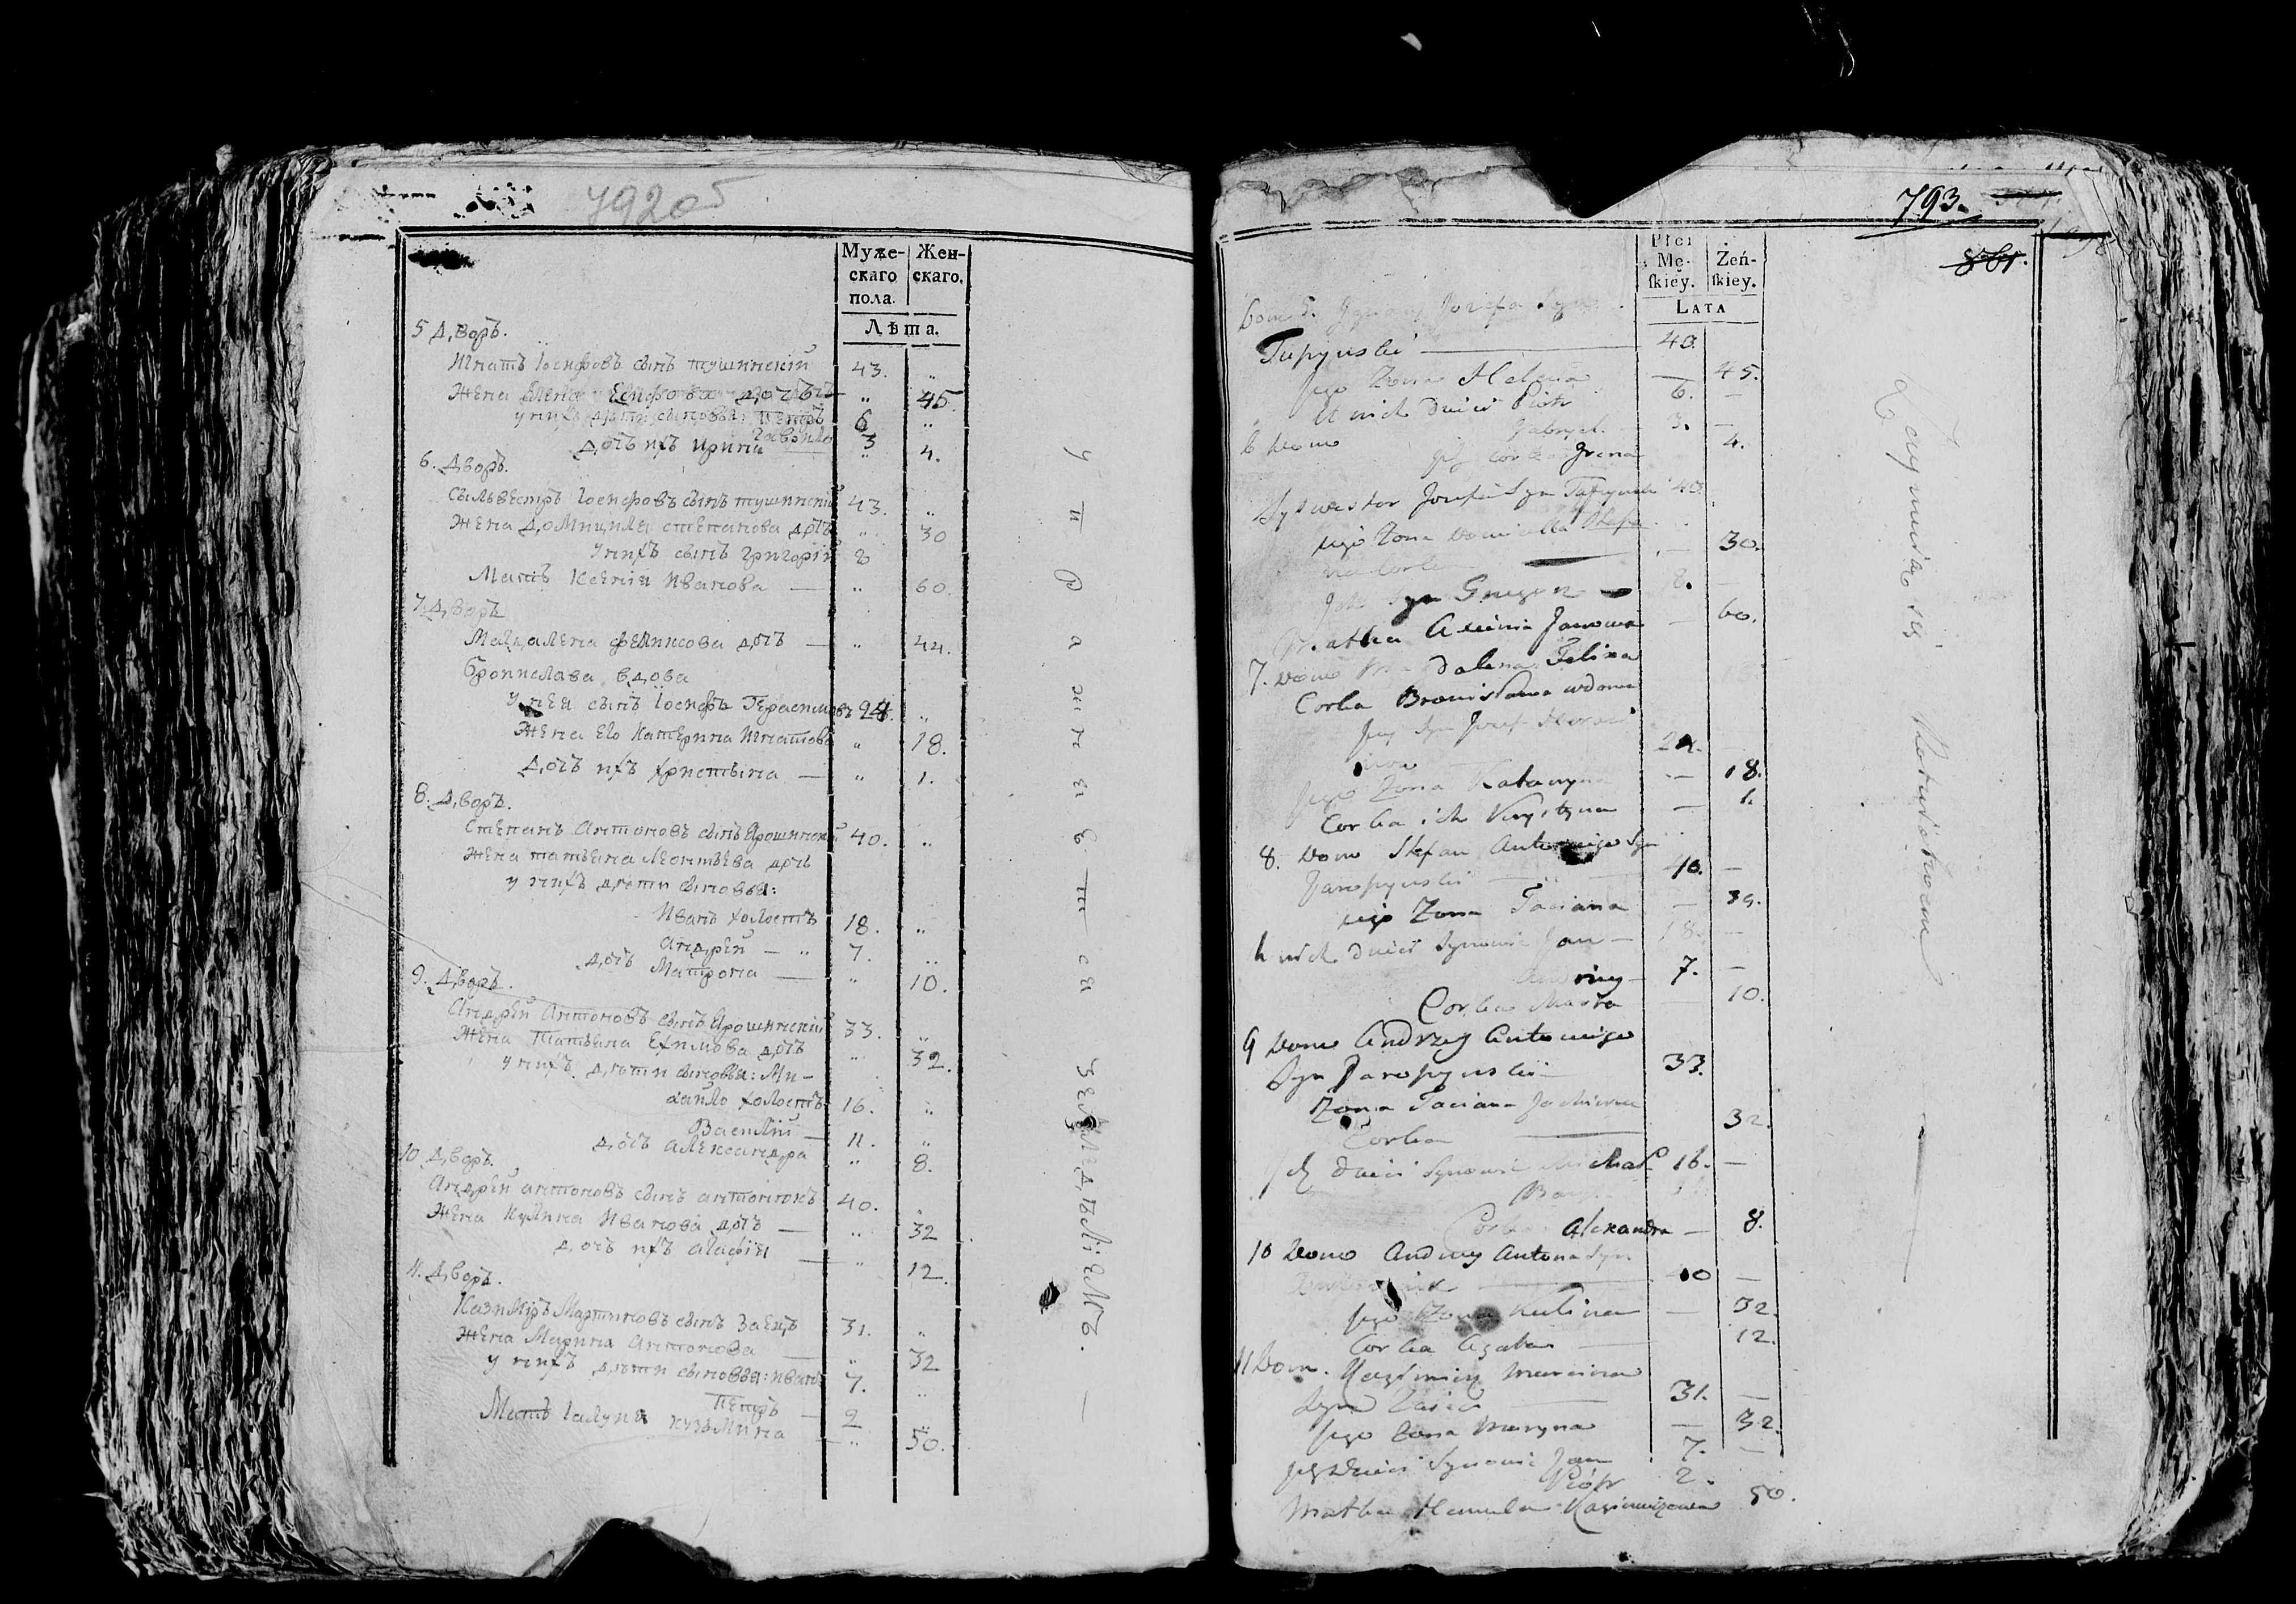 792об
Муже-
скаго
пола.
Жен-
скаго.
Лѣта.
5 Дворъ.
Игнатъ Іосифовъ сынъ тушинскій 43. „
Жена Елена дочь „ 45.
у нихъ дѣти сыновья: Петръ 6 „
Гаврило 3
дочь ихъ Ирина „ 4.
6. Дворъ.
Сыльвестръ Іосифовъ сынъ тушинскій 43. „
Жена Домициля степанова дочь „ 30
у нихъ сынъ Григорій 8
Мать Ксенія Иванова — „ 60.
7. Дворъ
Магдалена феликсова дочь — „ 44.
Брониславa вдова
у нея сынъ Іосифъ Герасимовъ 24. „
Жена Его Катерина Игнатова „ 18.
дочь ихъ христына — „ 1.
8. Дворъ.
Степанъ Антоновъ сынъ Ярошинскій 40. „
Жена татьяна Леонтьева дочь
у нихъ дѣти сыновья:
Иванъ холостъ 18. „
Андрей — „ 7. „
дочь Матрона — „ 10.
9. Дворъ.
Андрей Антоновъ сынъ Ярошинскій 33. „
Жена Татьяна Ехимова дочь „ 32.
у нихъ дѣти сыновья: Ми-
хайло холостъ 16. „
Василій — 11. „
дочь Александра „ 8.
10 Дворъ.
Андрей антоновъ сынъ антонюкъ 40. „
Жена Кулина Иванова дочь — „ 32
дочь ихъ агафія — „ 12.
11. Дворъ.
Казимиръ Мартиновъ сынъ Заецъ 31. „
Жена Марина антонова — „ 32
у нихъ дѣти сыновья: Иванъ 7. „
Петръ — 2 „
Мать кузьмина — „ 50.
упражняется земледѣліемъ. —
793.
861.
Płci
Mę-
skiey.
Żeń-
skiey.
LATA
Dom 5. Ignacy Jozefa Syn
Tupynski — 40.
jego Zona Helena — 45.
U nich dzieci Piotr 6. —
Gabryel 3. —
6 Dom
ich corka Irena 4.
Sylwester Jozefa Syn 43.
jego Zona Domicella Stefa
na Corka — 30.
Ich syn Gregor — 8. —
Matka Axenia Janowa — 60.
7. Dom Magdalena Felixa
Corka Bronisława wdowa
jey Syn Jozef 24. —
jego Zona Kataryna — 18.
Corka ich Krystyna — 1.
8. Dom Stefan Antoniego Syn
Jaroszynski — 40. —
jego Zona Taciana —
U nich dzieci Synowie Jan — 18. —
Andrzey — 7. —
Corka — 10.
9 Dom Andrzey Antoniego
Syn Jaroszynski — 33.
Zona Taciana
Corka — 32.
Ich dzieci Synowie Michał 16. —
Corka Alexandra — 8.
10 Dom Andrzey Antona Syn
— 40 —
jego Zona Kulina — 32.
Corka Agata — 12.
11 Dom. Kazimierz Marcina
Syn Zaiac — 31. —
jego Zona Maryna — 32.
ich dzieci Synowie Jan 7. —
Piotr 2.
Matka 50.
Zaymuie się Rolnictwem —